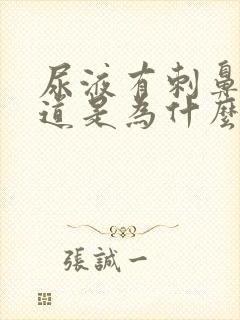 尿液有刺鼻
道是為什麼
張誠一